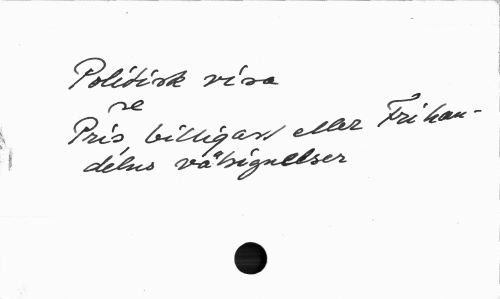 Politisk visa
se
Pris billigast eller Frihan-
delns välsignelser